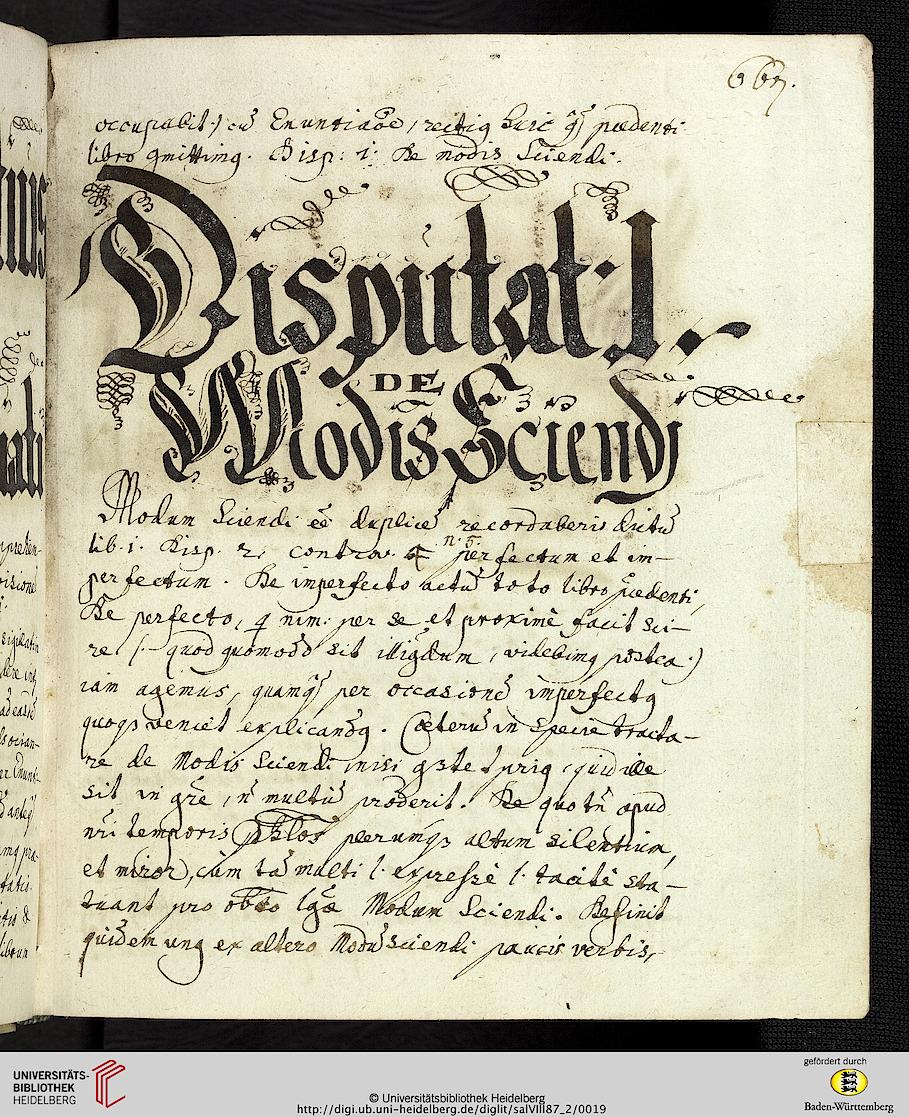 667.
occupabit) cũ Enuntiaõe, rectiq huic ꝗ̃ pr̃edenti
libro omittimq. Disp: 1: De modis Sciendi.
Disputat: I.
DE
Modis Sciendi
Modum Sciendi eẽ duplicẽ recordaberis dictũ
lib. 1. Disp. 2. controv. 4 n. 5. perfectum et im-
perfectum. De imperfecto actũ toto libro p̃cedenti,
De perfecto, q nim: per se et proximè facit sci-
re (:- quod quomodõ sit , videbimq postea.)
iam agemus, quamq̃ per occasionẽ imperfectq
quoqȝ veniet explicandq. Cæterũ in specie tracta-
re de Modis Sciendi, nisi gstet priq, quid ille
sit in gr̃e, ñ multũ proderit. De quo tñ apud
nr̃i temporis p̃hl̃os plerumqȝ altum silentium,
et miror, cum tã multi l. expressè l. tacitè sta-
tuant pro obt̃o lgæ̃ Modum Sciendi. Definit
quidem unq ex altero Modũ sciendi paucis verbis,
UNIVERSITÄTS-
BIBLIOTHEK
HEIDELBERG
© Universitätsbibliothek Heidelberg
http://digi.ub.uni-heidelberg.de/diglit/salVIII87_2/0019
gefördert durch
Baden-Württemberg